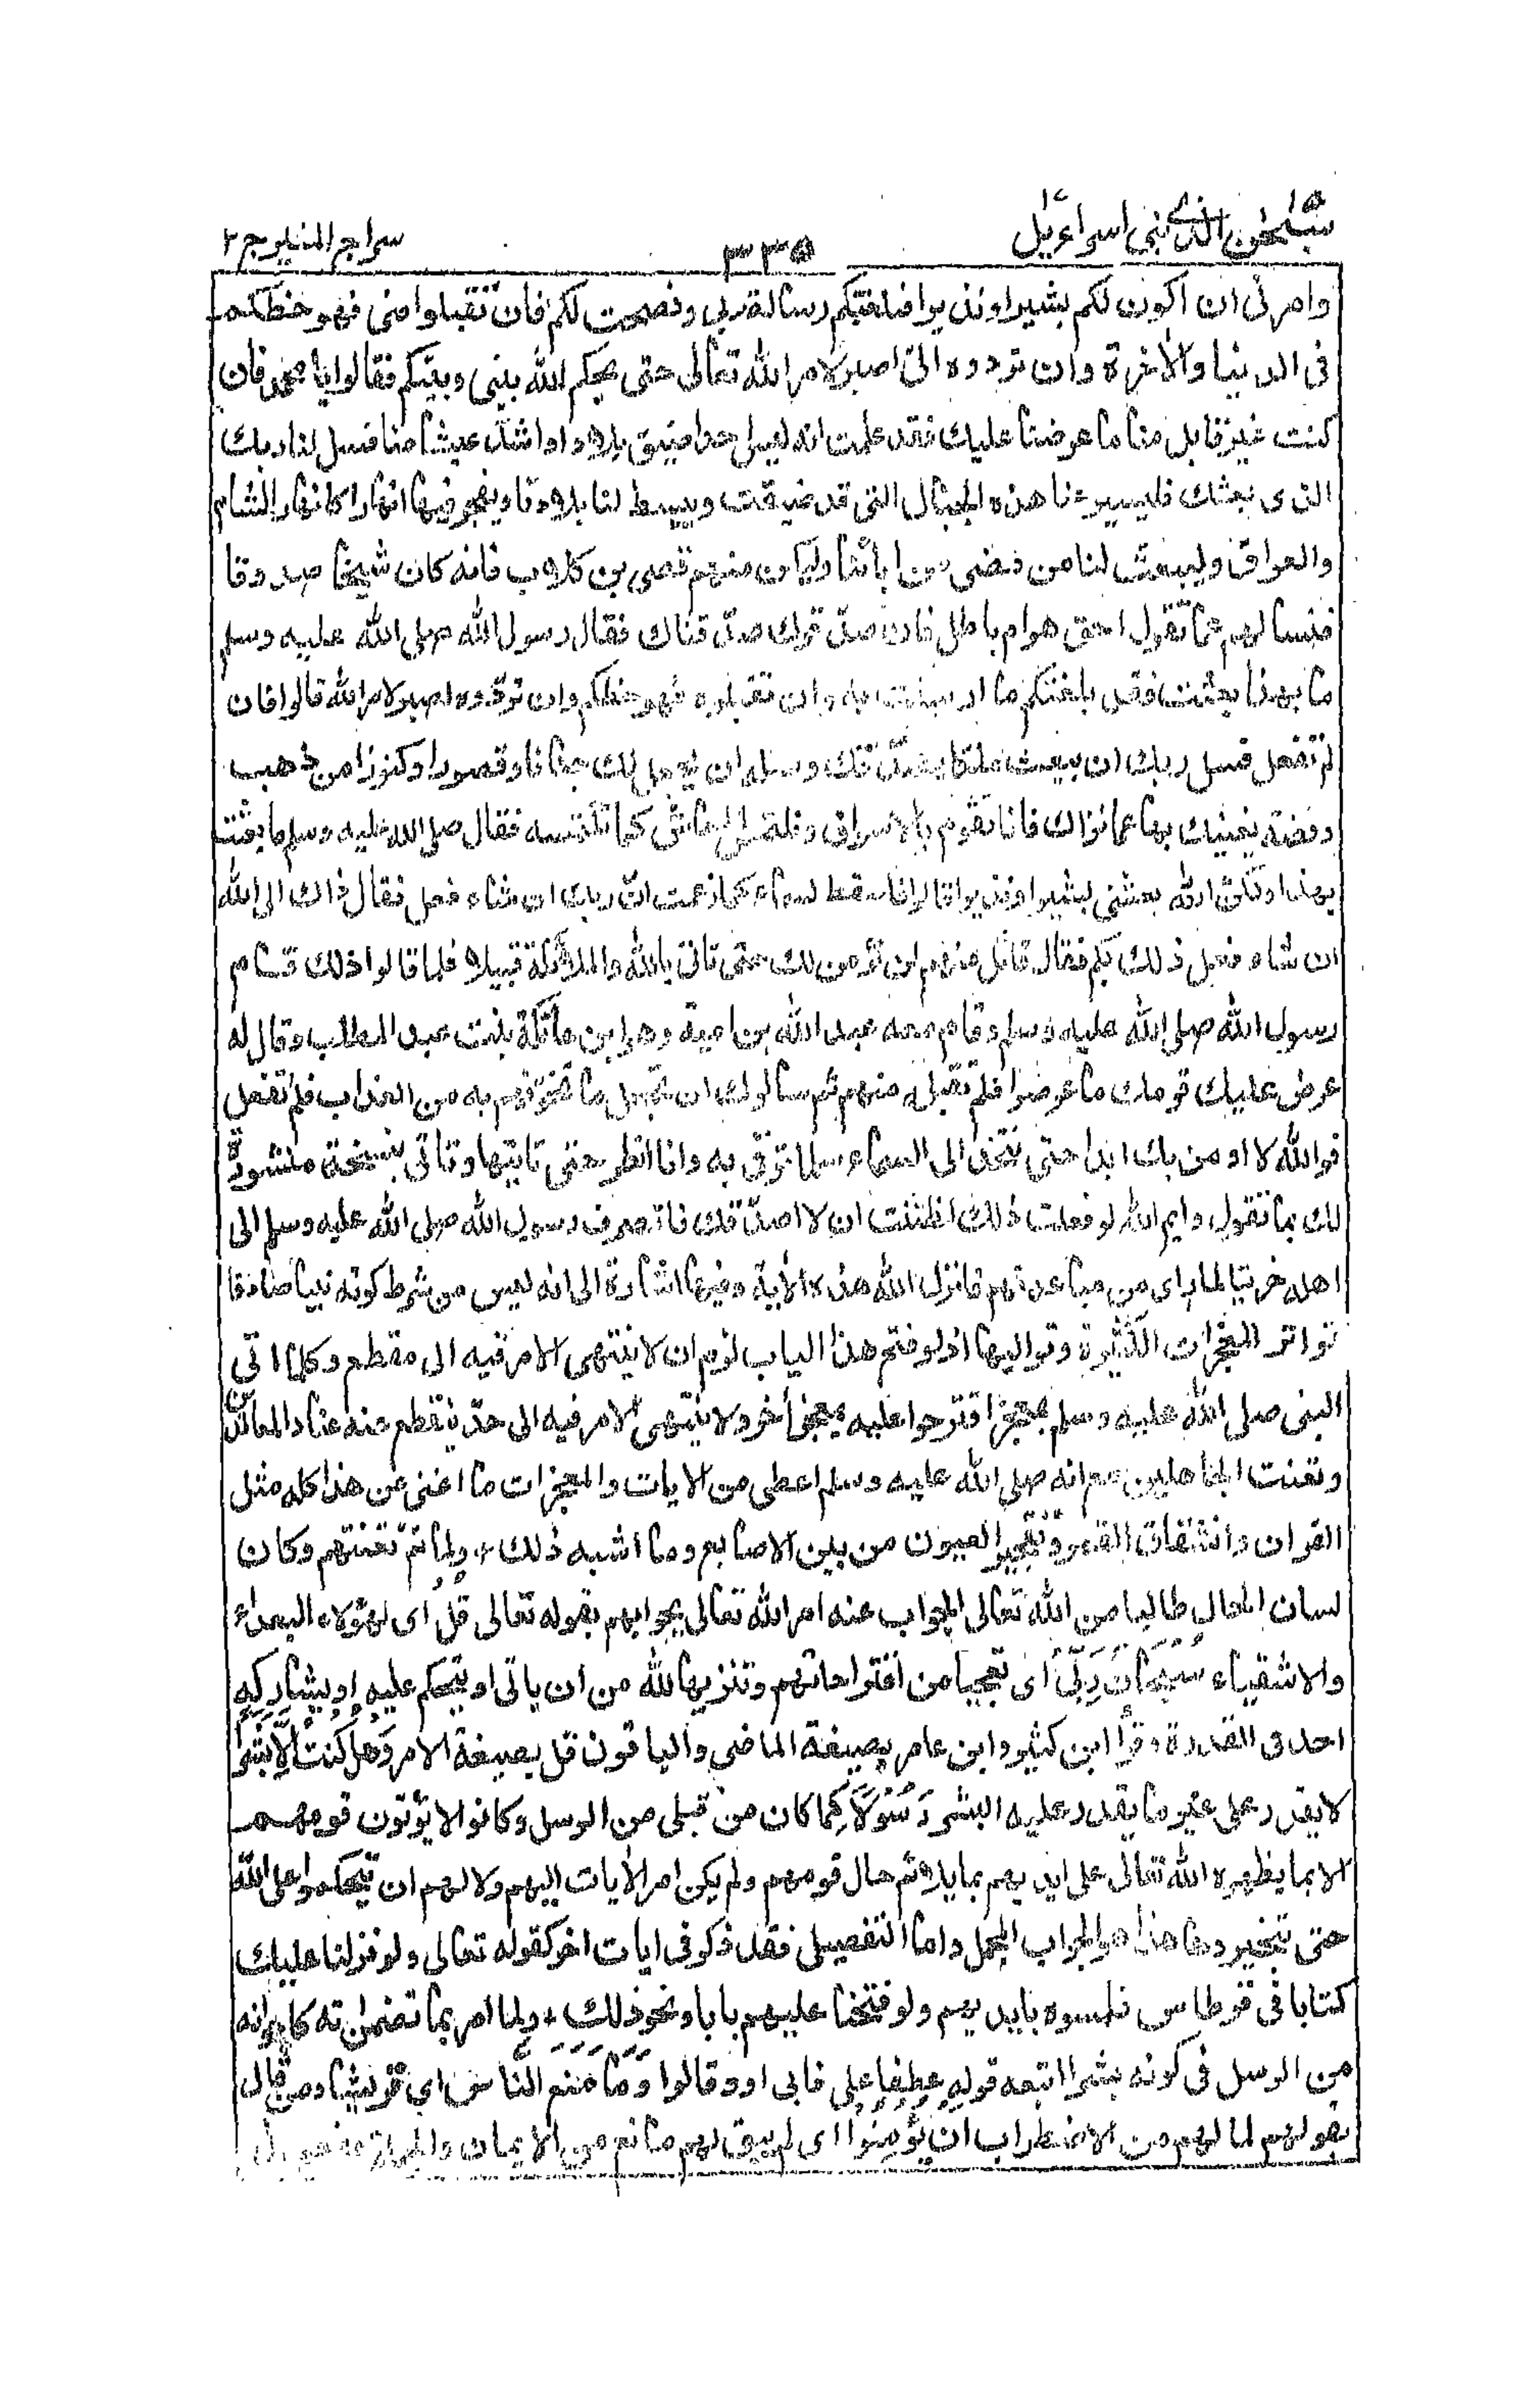 سبحٰن الذی ۱۵ بنی اسراءیل ۱۷
۳۳۵
سراج المنیر ج ۲
وامرنی ان اکون لکم بشیرا ونذیرا فبلغتکم رسالة ربی ونصحت لکم فان تقبلوا منی فهو حظکم
فی الدنیا والاٰخرة وان تردوه الیّ اصبر لامر الله تعالی حتی یحکم الله بینی وبینکم فقالوا یا محمد فان
کنت غیر قابل منا ما عرضنا علیك فقد علمت انه لیس احد اضیق بلادا واشدّ عیشا منا فسل لنا ربك
الذی بعثك فلیسیر عنا هذه الجبال التی قد ضیقت ویبسط لنا بلادنا ویفجر فیها انهارا کانهار الشام
والعراق ولیبعث لنا من مضی من اٰبائنا ولیکون منهم قصی بن کلاب فانه کان شیخا صدوقا
فنسالهم عما تقول احق هو ام باطل فان صدّقوك صدّقناك فقال رسول الله صلی الله علیه وسلم
ما بهذا بعثت فقد بلغتکم ما ارسلت به وان تقبلوه فهو حظکم وان تردّوه اصبر لامر الله قالوا فان
لم تفعل فسل ربك ان یبعث ملکا یصدّقك وسله ان یجعل لك جنانا وقصورا وکنوزا من ذهب
وفضة یغنیك بها عما نراك فانا تقوم بالاسواق وتلتمس المعاش کما نلتمسه فقال صلی الله علیه وسلم ما بعثت
بهذا ولکنّ الله بعثنی بشیرا ونذیرا قالوا فاسقط السماء کما زعمت انّ ربك ان شاء فعل فقال ذاك الی الله
ان شاء فعل ذلك بکم فقال قائل منهم لن نؤمن لك حتی تاتی بالله والملائکة قبیلا فلما قالوا ذلك قام
رسول الله صلی الله علیه وسلم وقام معه عبد الله بن امیة وهو ابن عاتکة بنت عبد المطلب وقال له
عرض علیك قومك ما عرضوا فلم تقبله منهم ثم سالوك ان تعجل ما تخوّفهم به من العذاب فلم تفعل
فوالله لا اومن بك ابدا حتی تتخذ الی السماء سلما ترقی به وانا انظر حتی تاتیها وتاتی بنسخة منشورة
لك بما تقول وایم الله لو فعلت ذلك لظننت ان لا اصدّقك فانصرف رسول الله صلی الله علیه وسلم الی
اهله حزینا لما رای من مباعدتهم فانزل الله هذه الاٰیة وفیها اشارة الی انه لیس من شرط کونه نبیا صادقا
تواتر المعجزات الکثیرة وتوالیها اذ لو فتح هذا الباب لزم ان لا ینتهی الامر فیه الی مقطع وکلما اتی
النبی صلی الله علیه وسلم بمعجز اقترحوا علیه بمعجز اٰخر ولا ینتهی الامر فیه الی حدّ ینقطع عنه عناد المعاندین
وتعنت الجاهلین مع انه صلی الله علیه وسلم اعطی من الایات والمعجزات ما اغنی عن هذا کله مثل
القران وانشقاق القمر وتفجیر العیون من بین الاصابع وما اشبه ذلك + ولما تمّ تعنتهم وکان
لسان الحال طالبا من الله تعالی الجواب عنه امر الله تعالی بجوابهم بقوله تعالی قُلْ ای لهؤلاء البعداء
والاشقیاء سُبْحَانَ رَبِّیْ ای تعجبا من اقتراحاتهم وتنزیها لله من ان یاتی او یتحکم علیه او یشارکه
احد فی القدرة وقرأ ابن کثیر وابن عامر بصیغة الماضی والباقون قل بصیغة الامر هَلْ کُنْتُ اِلَّا بَشَرًا
لا یقدر علی غیر ما یقدر علیه البشر رَسُوْلًا کما کان من قبلی من الرسل وکانوا لا یؤتون قومهم
الا بما یظهره الله تعالی علی ایدیهم بما یلائم حال قومهم ولم یکن امر الاٰیات الیهم ولا لهم ان یتحکموا علی الله
حتی تتخیروها هذا هو الجواب المجمل واما التفصیل فقد ذکر فی ایات اخر کقوله تعالی ولو نزلنا علیك
کتابا فی قرطاس فلمسوه بایدیهم ولو فتحنا علیهم بابا ونحو ذلك + ولما امر بما تضمن انه کاخوانه
من الرسل فی کونه بشرا اتبعه قوله عطفا علی فابی او وقالوا وَمَا مَنَعَ النَّاسَ ای قریشا ومن قال
بقولهم لما لهم من الاضطراب اَنْ یُّؤْمِنُوْا ای لم یبق لهم مانع من الایمان